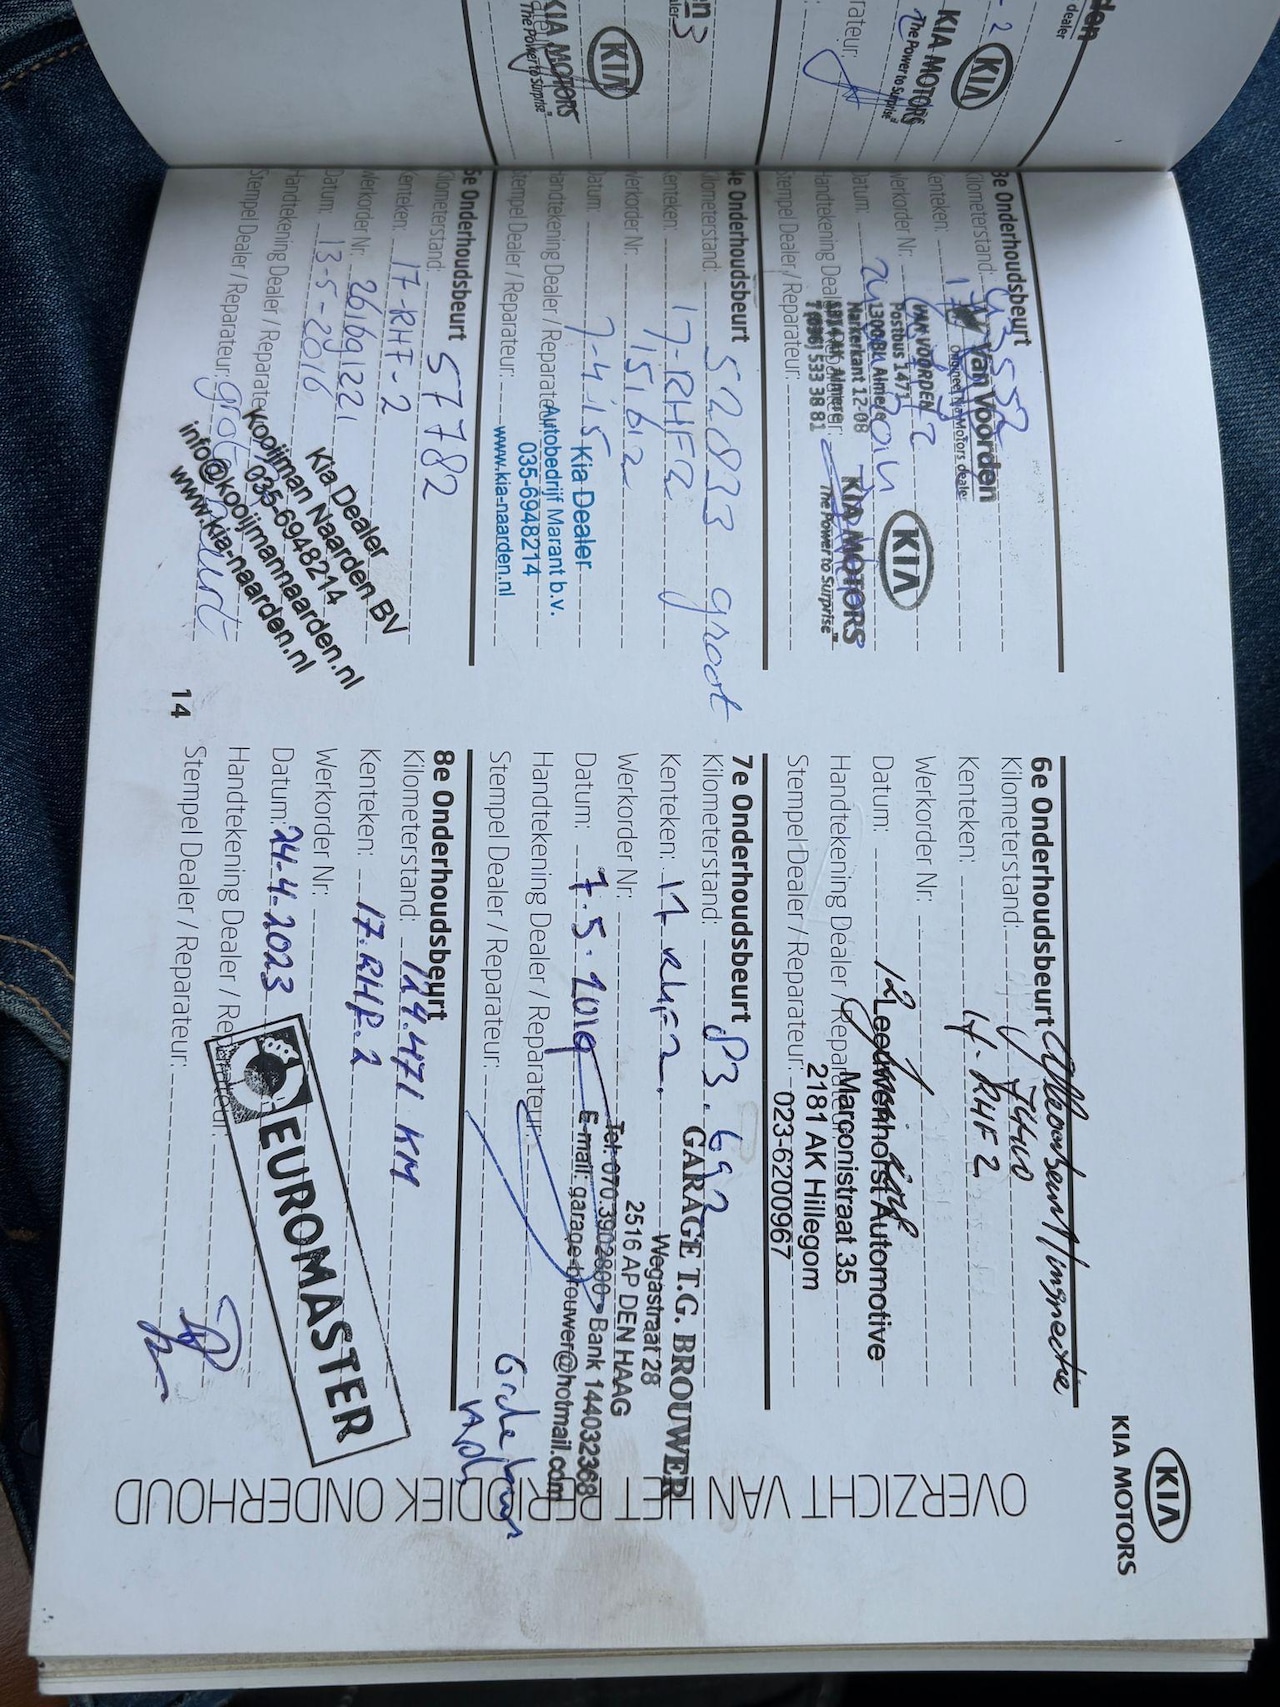 KIA MOTORS
The Power to Surprise"
KIA
dealer
KIA MOTORS
The Power to Surprise"
KIA
3e Onderhoudsbeurt
Kilometerstand:
Kenteken:
Werkorder Nr:
Datum:
Handtekening Dealer / Reparateur:
Stempel Dealer / Reparateur:
Van Voorden
VAN VOORDEN
Postbus 1471
1300 BL Almere
Markerkant 12-08
1314 AK Almere
T (036) 533 38 81
KIA
KIA MOTORS
The Power to Surprise"
4e Onderhoudsbeurt
Kilometerstand: 52033 groot
Kenteken: 17-RHF2
Werkorder Nr: 151612
Datum: 7-4-15
Handtekening Dealer / Reparateur:
Stempel Dealer / Reparateur:
Kia Dealer
Autobedrijf Marant b.v.
035-6948214
www.kia-naarden.nl
5e Onderhoudsbeurt
Kilometerstand: 57782
Kenteken: 17-RHF-2
Werkorder Nr: 261691221
Datum: 13-5-2016
Handtekening Dealer / Reparateur:
Stempel Dealer / Reparateur: grote beurt
Kia Dealer
Kooijman Naarden BV
035-6948214
info@kooijmannaarden.nl
www.kia-naarden.nl
14
KIA
KIA MOTORS
OVERZICHT VAN HET PERIODIEK ONDERHOUD
6e Onderhoudsbeurt
Kilometerstand:
Kenteken: 17-RHF2
Werkorder Nr:
Datum: 12
Handtekening Dealer / Reparateur:
Stempel Dealer / Reparateur:
Leeuwenhorst Automotive
Marconistraat 35
2181 AK Hillegom
023-6200967
7e Onderhoudsbeurt
Kilometerstand: 83.692
Kenteken: 17 RHF2
Werkorder Nr:
Datum: 7.5.2019
Handtekening Dealer / Reparateur:
Stempel Dealer / Reparateur:
GARAGE T.G. BROUWER
Wegastraat 28
2516 AP DEN HAAG
Tel: 070.3902800 - Bank 144032368
E-mail: garage-brouwer@hotmail.com
8e Onderhoudsbeurt
Kilometerstand: 124.471 KM
Kenteken: 17.RHF.2
Werkorder Nr:
Datum: 24-4-2023
Handtekening Dealer / Reparateur:
Stempel Dealer / Reparateur:
EUROMASTER